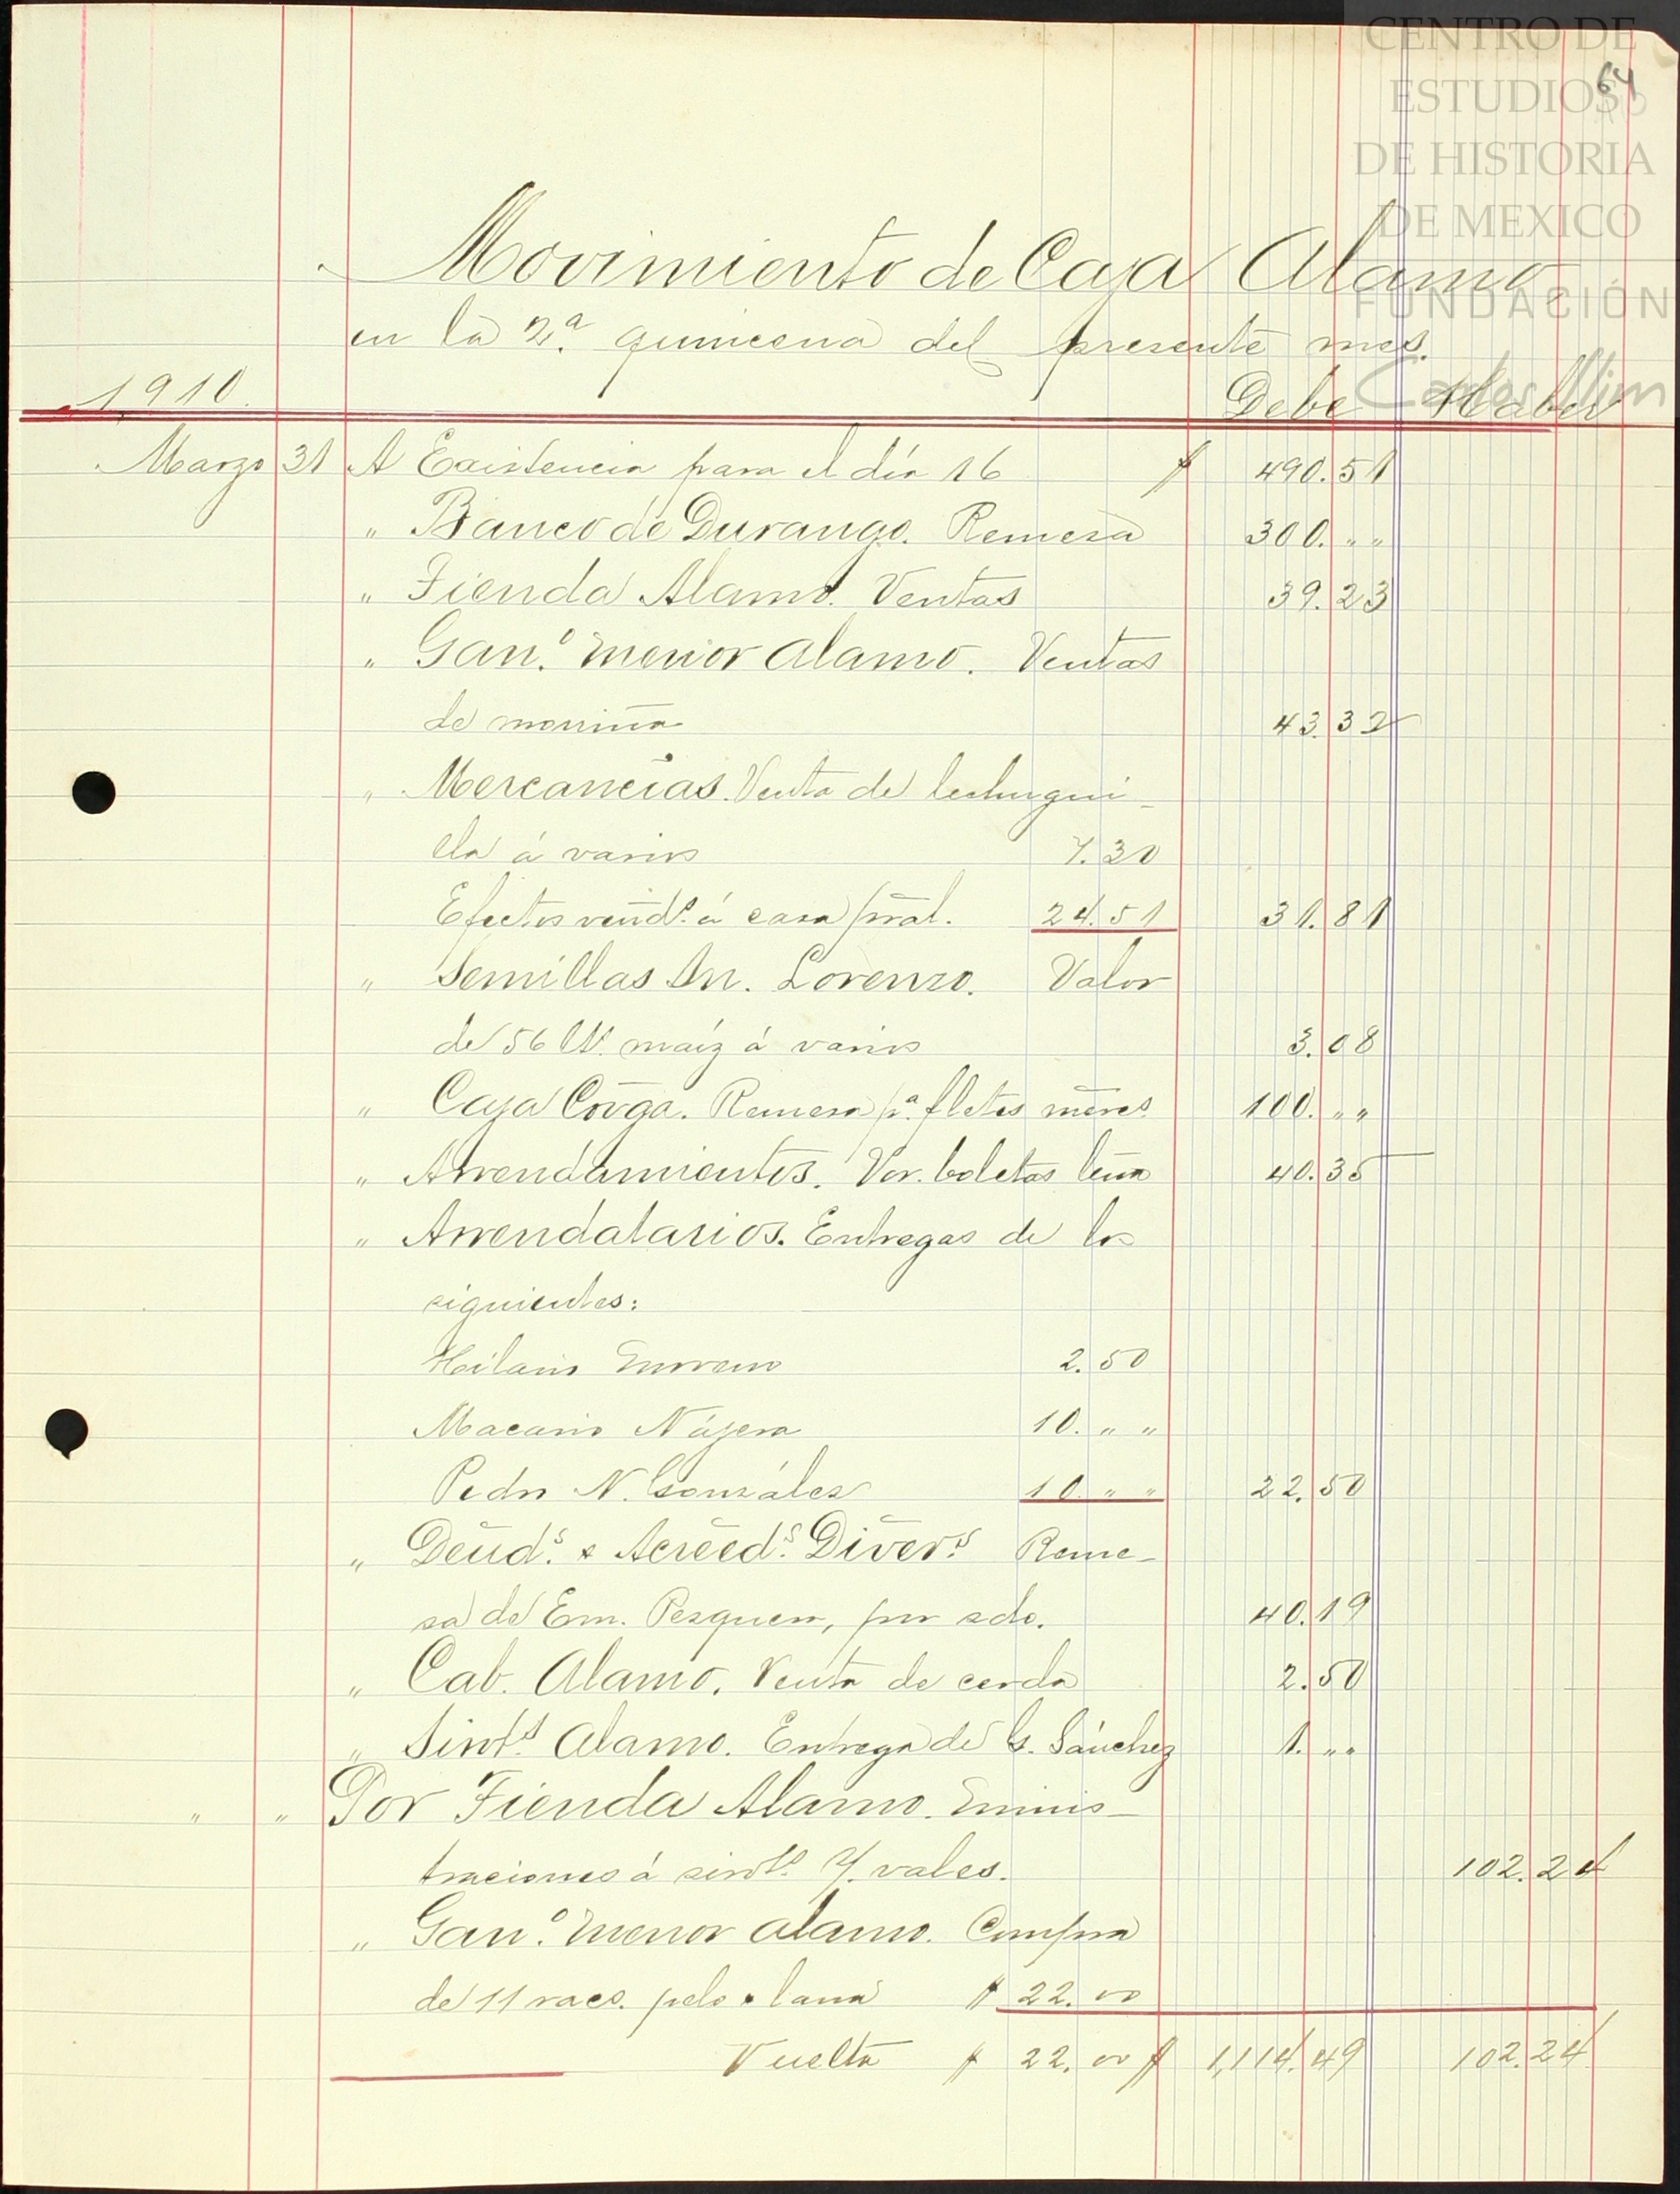 CENTRO DE
ESTUDIOS
DE HISTORIA
DE MEXICO
FUNDACIÓN
Carlos Slim
64
Movimiento de Caja Alamo,
en la 2.ª quincena del presente mes.
1910. Debe Haber
Marzo 31 A Existencia para el día 16 $ 490.51
" Banco de Durango. Remesa 300. " "
" Tienda Alamo. Ventas 39.23
" Gan.º menor Alamo. Ventas
de morriña 43.32
" Mercancías. Venta de lechugui-
lla á varios 7.30
Efectos vend.s á casa pral. 24.51 31.81
" Semillas Sn. Lorenzo. Valor
de 56 lts. maíz á varios 3.08
" Caja Conga. Remesa p.ª fletes mercs. 100. " "
" Arrendamientos. Vor. boletas leña 40.35
" Arrendatarios. Entregas de los
siguientes:
Hilario 2.50
Macario Nájera 10. " "
Pedro N. Gonzáles 10. " " 22.50
" Deud.s & Acreed.s Divers.s Reme-
sa de Em. Pesquera, por sdo. 40.19
" Cab. Alamo. Venta de cerda 2.50
" Sirvt.s Alamo. Entrega de G. Sánchez 1. " "
" " Por Tienda Alamo. Sumins-
traciones á sirvts. y vales. 102.24
" Gan.º menor Alamo. Compra
de 11 racs. pelo & lana $ 22.00
Vuelta $ 22.00 $ 1,114.49 102.24